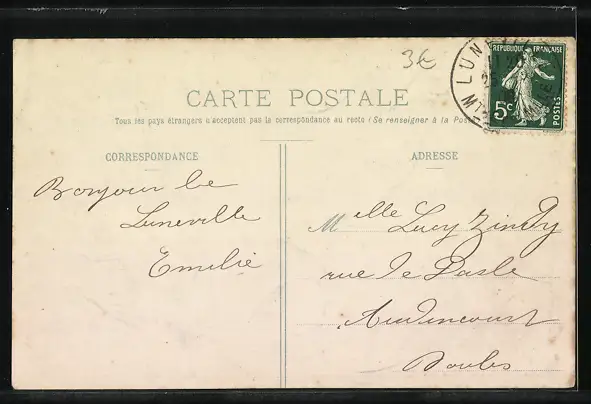 3€
LUNEVILLE
REPUBLIQUE FRANÇAISE
5c
POSTES
CARTE POSTALE
Tous les pays étrangers n'acceptent pas la correspondance au recto (Se renseigner à la Poste
CORRESPONDANCE
ADRESSE
Bonjour de
Luneville
Emilie
Melle Lucy Zindy
rue de Dasle
Audincourt
Doubs